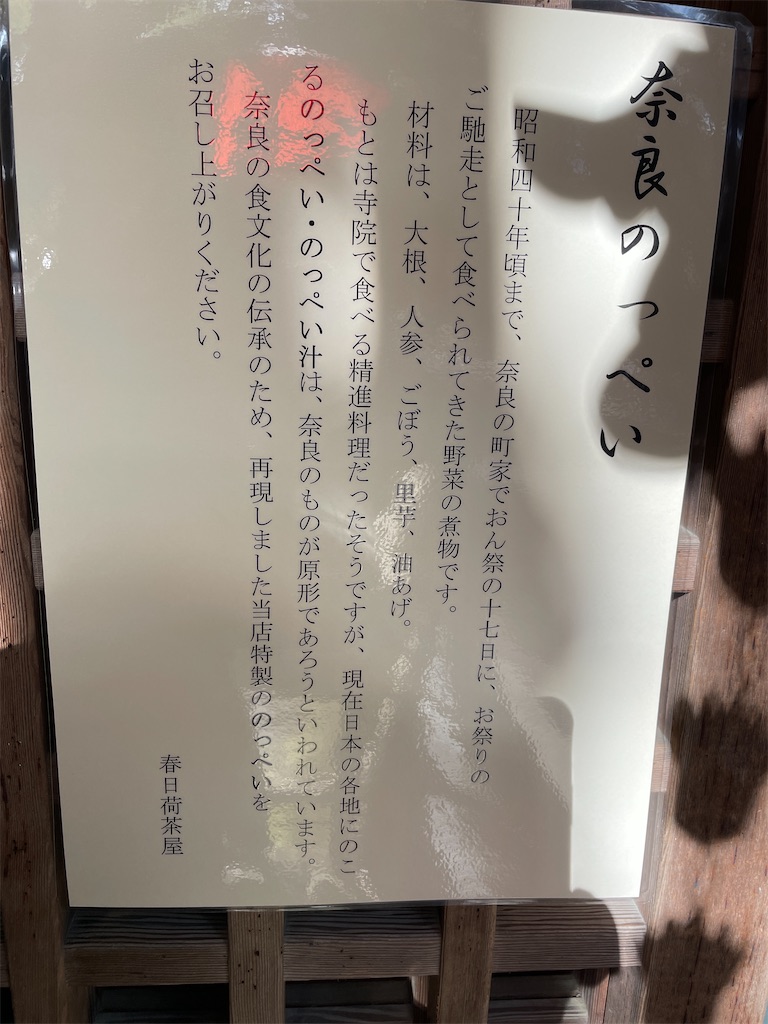 奈良のっぺい
昭和四十年頃まで、奈良の町家でおん祭の十七日に、お祭りの
ご馳走として食べられてきた野菜の煮物です。
材料は、大根、人参、ごぼう、里芋、油あげ。
もとは寺院で食べる精進料理だったそうですが、現在日本の各地にのこ
るのっぺい・のっぺい汁は、奈良のものが原形であろうといわれています。
奈良の食文化の伝承のため、再現しました当店特製ののっぺいを
お召し上がりください。
春日荷茶屋